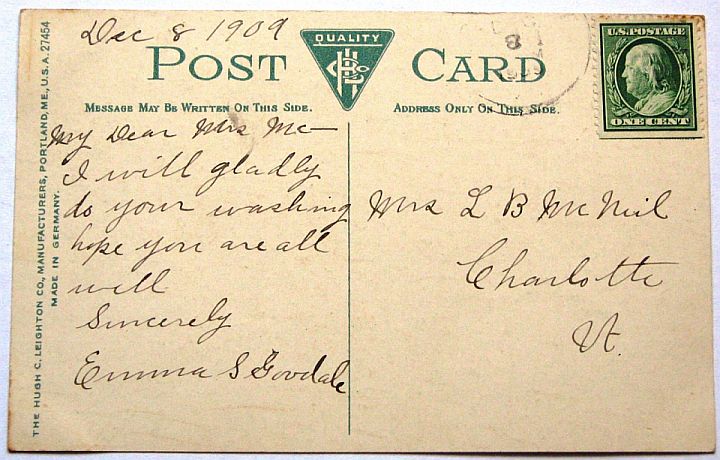 Dec 8 1909
QUALITY
POST CARD
MESSAGE MAY BE WRITTEN ON THIS SIDE.
ADDRESS ONLY ON THIS SIDE.
8
1909
U.S. POSTAGE
ONE CENT
My Dear Mrs Mc—
I will gladly
do your washing
hope you are all
well
Sincerely
Emma S Goodale
Mrs L B McNeil
Charlotte
Vt.
THE HUGH C. LEIGHTON CO., MANUFACTURERS, PORTLAND, ME., U.S.A. 27454
MADE IN GERMANY.